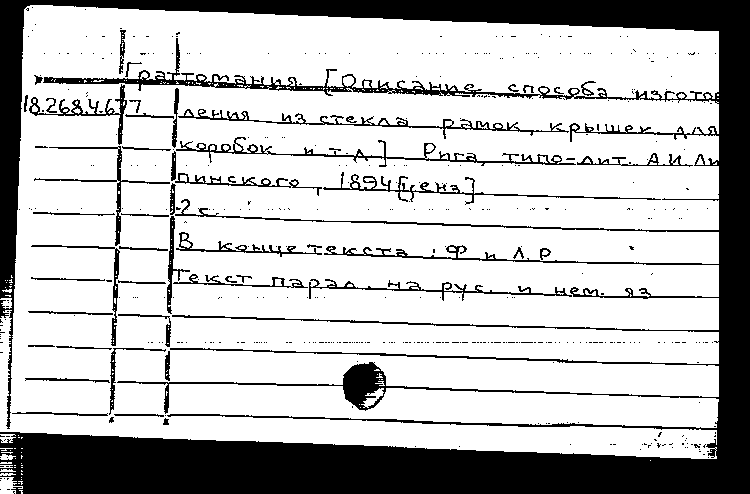 Граттомания. [Описание способа изготов
18.268.4.677. ления из стекла рамок, крышек для
коробок и т.д.] Рига, типо-лит. А.И.Ли
пинского, 1894[ценз].
2 с.
В конце текста: Ф и Л.Р.
Текст парал. на рус. и нем. яз